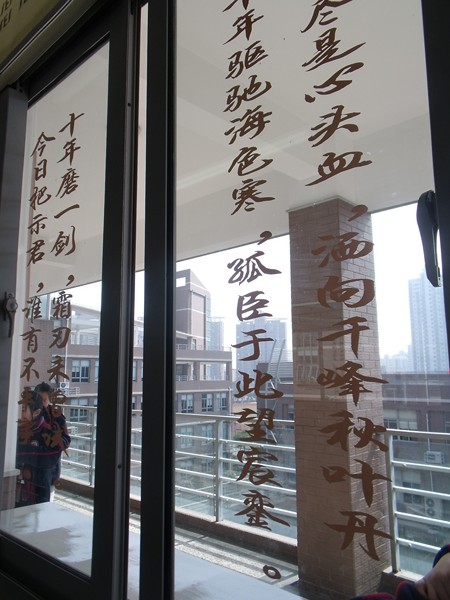 十年磨一剑，霜刃未曾
今日把示君，谁有不
十年驱驰海色寒，孤臣于此望宸銮。
尽是心头血，洒向千峰秋叶丹